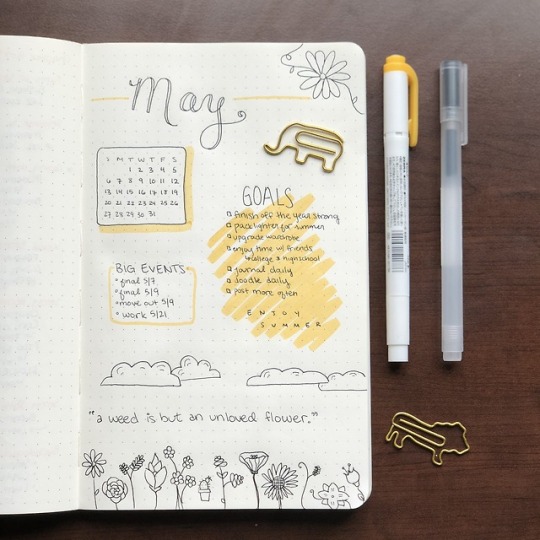 May
S M T W T F S
1 2 3 4 5
6 7 8 9 10 11 12
13 14 15 16 17 18 19
20 21 22 23 24 25 26
27 28 29 30 31
GOALS
finish off the year strong
pack lighter for summer
upgrade wardrobe
enjoy time w/ friends
↳ college & highschool
journal daily
doodle daily
post more often
ENJOY
SUMMER
BIG EVENTS
final 5/7
final 5/9
move out 5/9
work 5/21
"a weed is but an unloved flower."